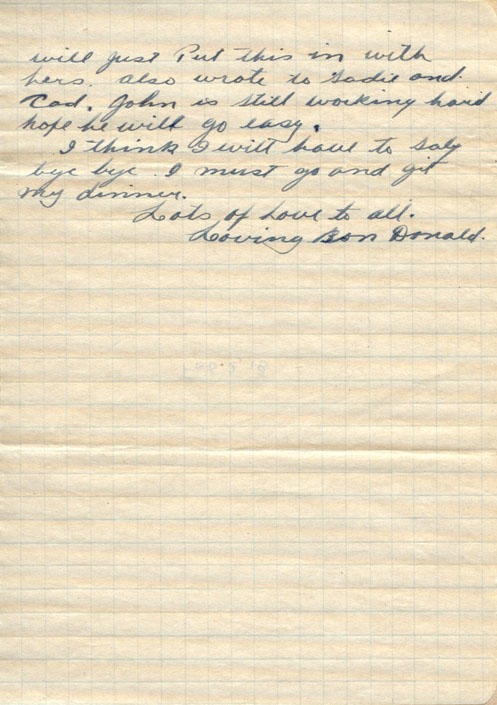 will just Put this in with
hers. also wrote to Sadie and
Tad. John is still working hard
hope he will go easy.
I think I will have to say
bye bye. I must go and git
my dinner.
Lots of Love to all.
Loving Son Donald.